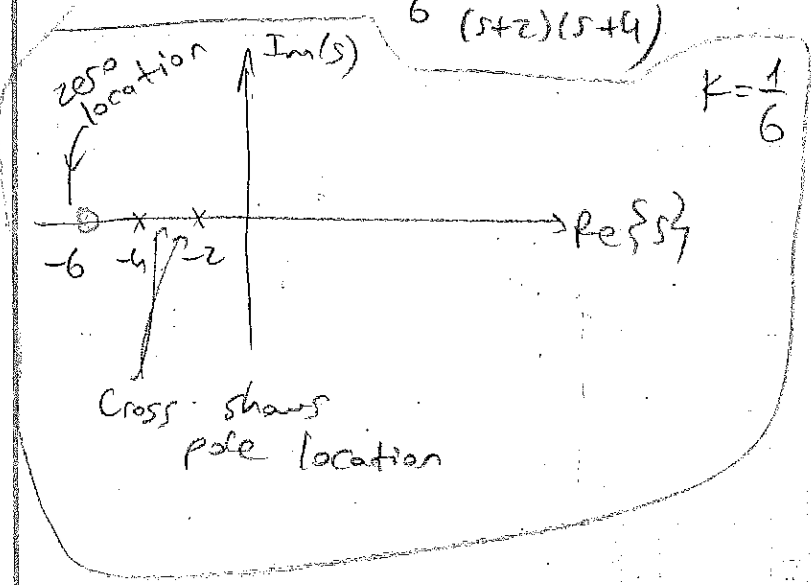 6 (s+2)(s+4)
zero location
Im(s)
K=1/6
Re{s}
-6 -4 -2
Cross shows
pole location